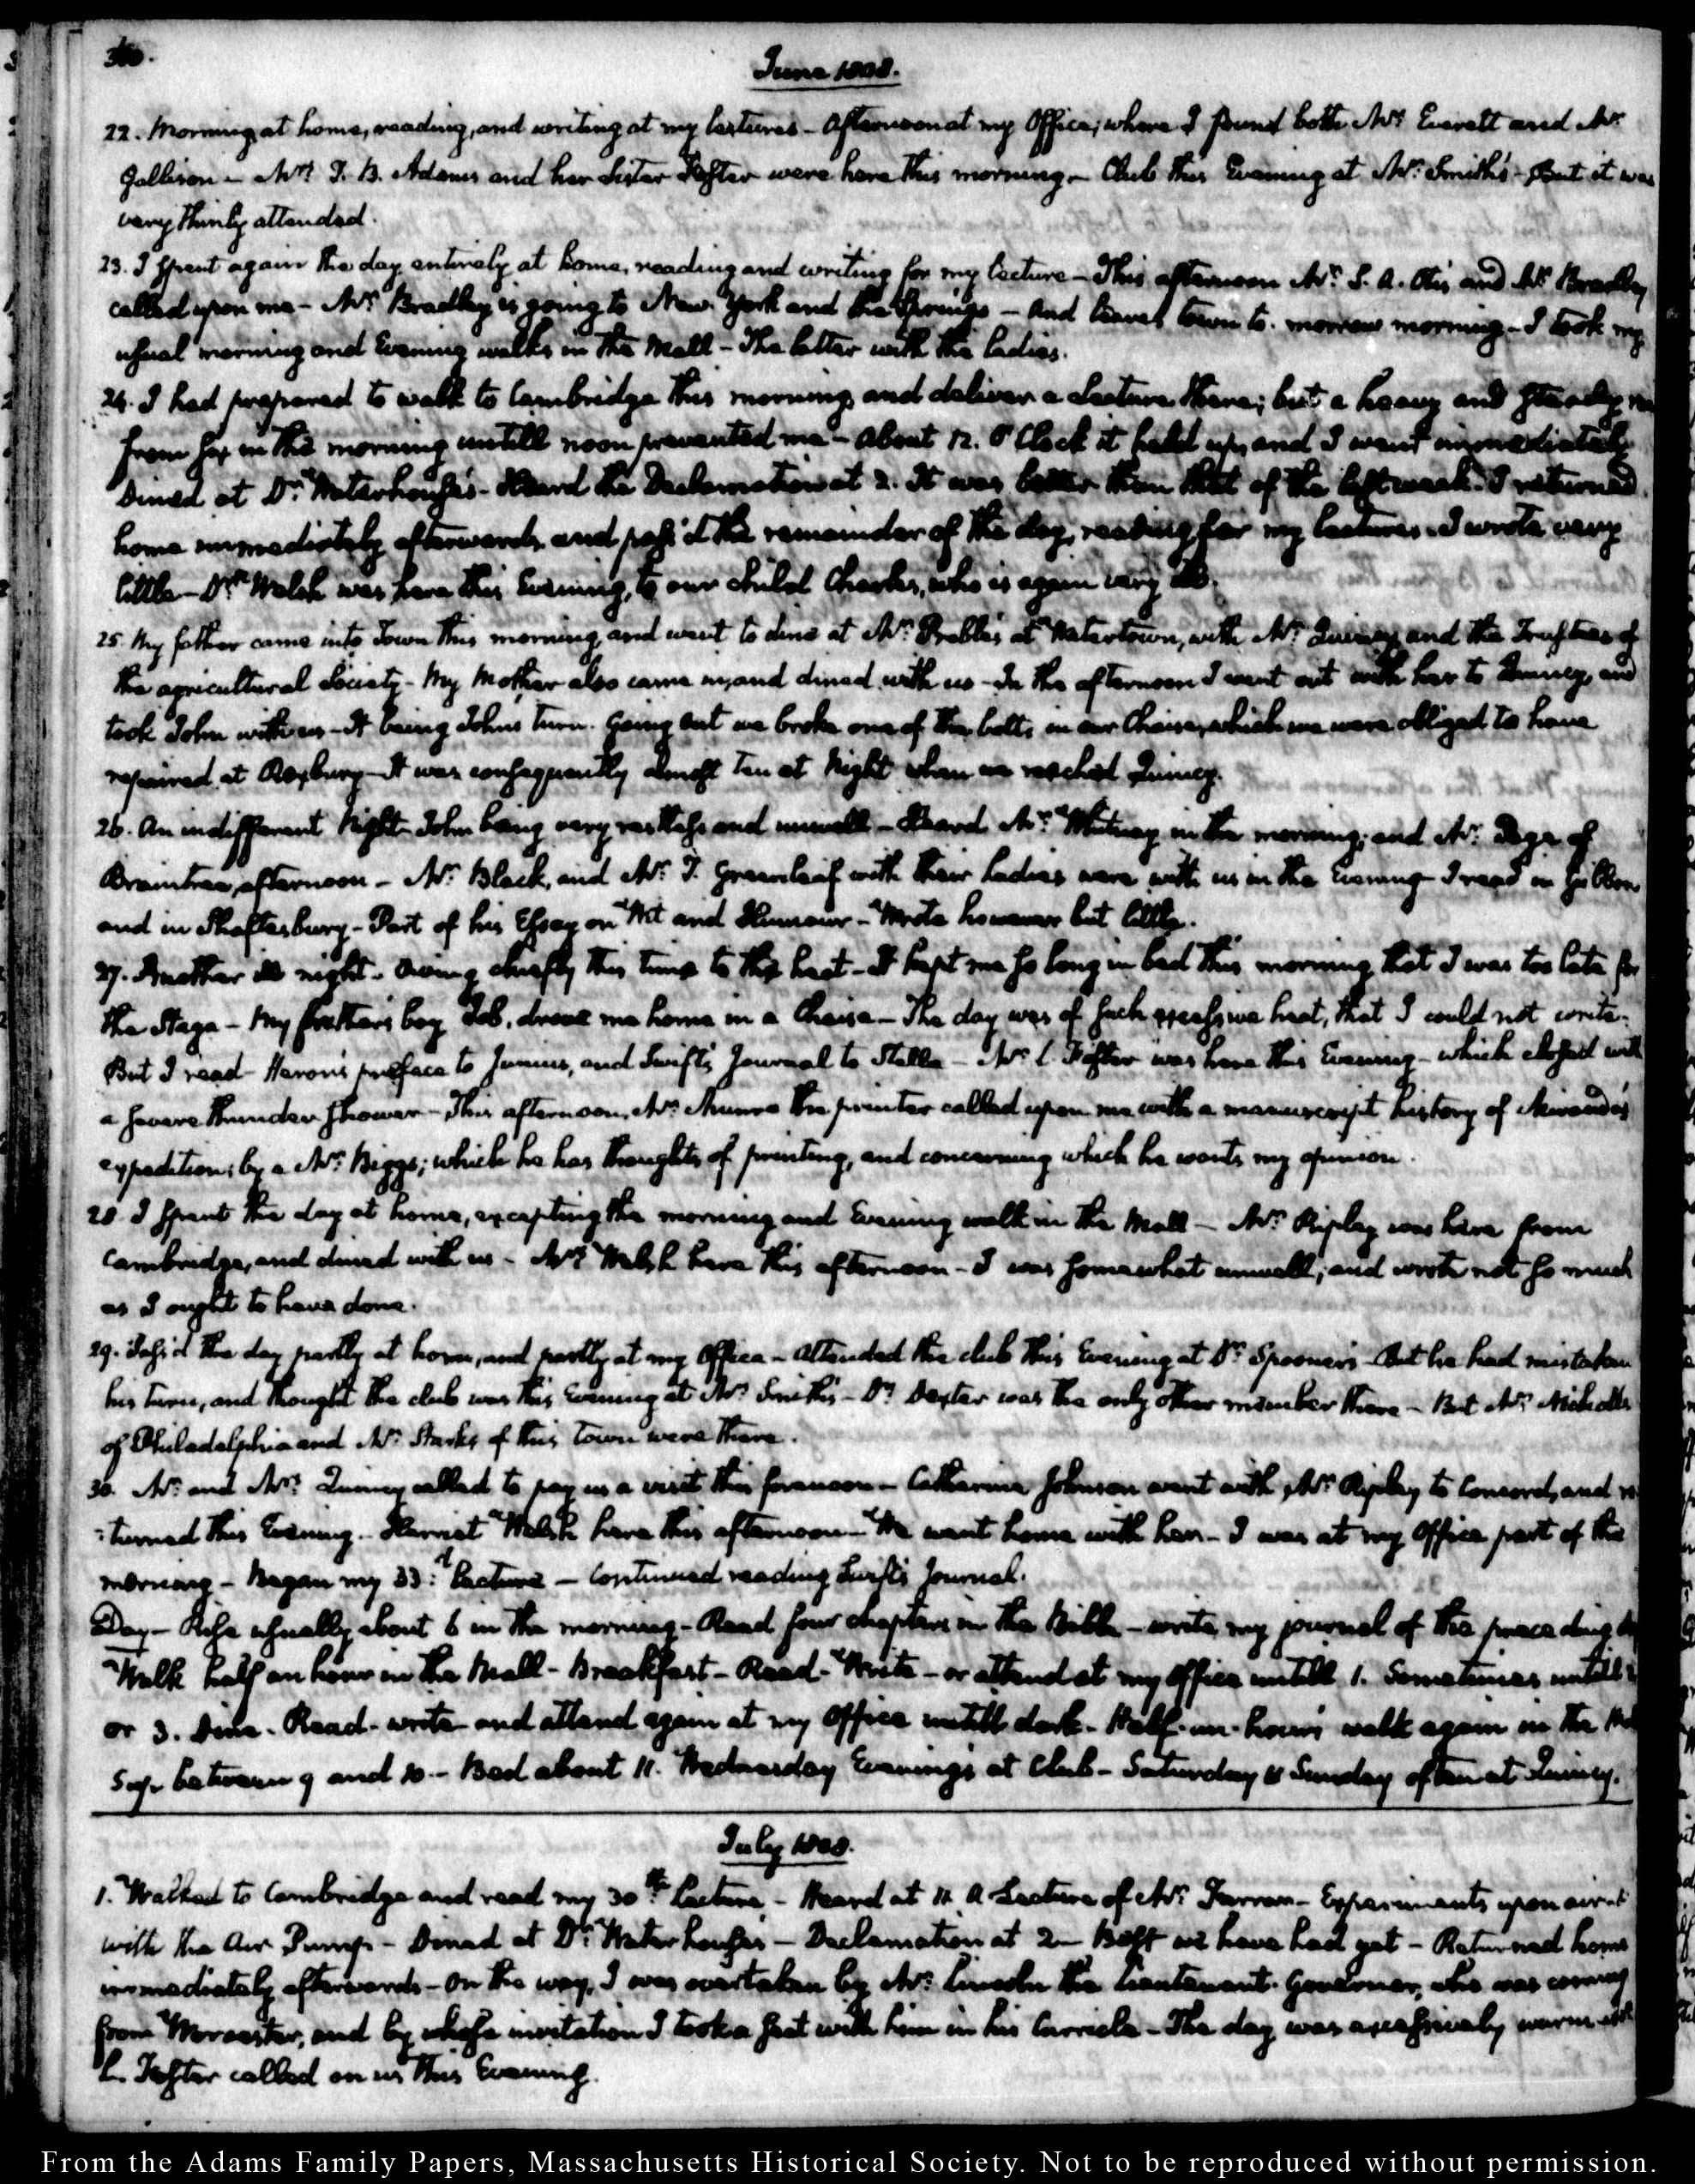 360.
June 1808.
22. Morning at home, reading, and writing at my lectures – Afternoon at my Office; where I found both Mr. Everett and Mr.
Gallison – Mrs. T. B. Adams and her Sister Foster were here this morning – Club this Evening at Mr. Smith's – But it was
very thinly attended.
23. I spent again the day entirely at home, reading and writing for my lecture – This afternoon Mr. S. A. Otis and Mr. Bradley
called upon me – Mr. Bradley is going to New York and the Springs – And leaves town to-morrow morning – I took my
usual morning and Evening walks in the Mall – The latter with the ladies.
24. I had prepared to walk to Cambridge this morning, and deliver a Lecture there; but a heavy and steady
from six in the morning untill noon prevented me – About 12. O'Clock it held up, and I went immediately
Dined at Dr. Waterhouse's – Heard the Declamation at 2. It was better than that of the last week. I returned
home immediately afterwards, and pass'd the remainder of the day, reading for my lectures. I wrote very
little – Dr. Welsh was here this Evening, to our child Charles, who is again very ill.
25. My father came into Town this morning, and went to dine at Mr. Preble's at Watertown, with Mr. Quincy and the Trustees of
the agricultural Society – My Mother also came in, and dined with us – In the afternoon I went out with her to Quincy, and
took John with us – It being Johns turn. Going out we broke one of the bolts in our Chaise, which we were obliged to have
repaired at Roxbury – It was consequently almost Ten at Night when we reached Quincy.
26. An indifferent Night – John being very restless and unwell – Heard Mr. Whitney in the morning; and Mr. Sage of
Braintree, afternoon – Mr. Black, and Mr. T. Greenleaf with their Ladies were with us in the Evening – I read in Gibbon
and in Shaftesbury – Part of his Essay on Wit and Humour – Wrote however but little.
27. Another ill night – Owing chiefly this time to the heat – It kept me so long in bed this morning that I was too late for
the Stage – My brother's boy Job, drove me home in a Chaise – The day was of such excessive heat, that I could not write.
But I read Heron's preface to Junius, and Swift's Journal to Stella – Mr. L. Foster was here this Evening – which closed with
a severe thunder shower – This afternoon, Mr. Munro the printer called upon me with a manuscript history of Miranda's
expedition; by a Mr. Biggs; which he has thoughts of printing, and concerning which he wants my opinion.
28. I spent the day at home, excepting the morning and Evening walk in the Mall – Mr. Ripley was here from
Cambridge, and dined with us – Mrs. Welsh here this afternoon – I was somewhat unwell, and wrote not so much
as I ought to have done.
29. Pass'd the day partly at home, and partly at my Office – Attended the club this Evening at Dr. Spooner's – But he had mistaken
his turn, and thought the club was this Evening at Mr. Smith's – Dr. Dexter was the only other member there – But Mr. Nicholls
of Philadelphia and Mr. Starks of this Town were there.
30. Mr. and Mrs. Quincy called to pay us a visit this forenoon – Catharine Johnson went with Mr. Ripley to Concord, and re
:turned this Evening – Harriet Welsh here this afternoon – We went home with her – I was at my Office part of the
morning – Began my 33d. Lecture – Continued reading Swift's Journal.
Day – Rise usually about 6 in the morning – Read four chapters in the Bible – write my journal of the preceding
Walk half an hour in the Mall – Breakfast – Read – Write – or attend at my office untill 1. Sometimes untill 2
or 3. Dine – Read – write and attend again at my Office untill dark – Half-an-hour's walk again in the Mall
Sup between 9 and 10 – Bed about 11. Wednesday Evenings at Club – Saturday & Sunday often at Quincy.
July 1808.
1. Walked to Cambridge and read my 30th. Lecture – Heard at 11. A Lecture of Mr. Farrar – Experiments upon air
with the Air Pump – Dined at Dr. Waterhouse's – Declamation at 2 – Best we have had yet – Returned home
immediately afterwards – On the way, I was overtaken by Mr. Lincoln the Lieutenant-Governor, who was coming
from Worcester, and by whose invitation I took a seat with him in his Curricle – The day was excessively warm
L. Foster called on us this Evening.
From the Adams Family Papers, Massachusetts Historical Society. Not to be reproduced without permission.